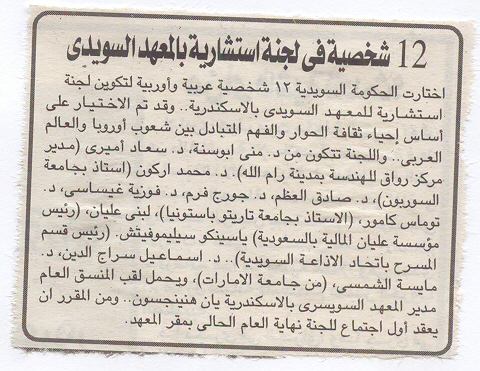 12 شخصية فى لجنة استشارية بالمعهد السويدى
اختارت الحكومة السويدية ١٢ شخصية عربية وأوربية لتكوين لجنة
استشارية للمعهد السويدى بالاسكندرية.. وقد تم الاختيار على
أساس إحياء ثقافة الحوار والفهم المتبادل بين شعوب أوروبا والعالم
العربى.. واللجنة تتكون من د. منى ابوسنة، د. سعاد أميرى (مدير
مركز رواق للهندسة بمدينة رام الله). د. محمد اركون (استاذ بجامعة
السوربون)، د. صادق العظم، د. جورج قرم، د. فوزية غيساسى، د.
توماس كامور، (الاستاذ بجامعة تاريتو باستونيا)، لبنى عليان، (رئيس
مؤسسة عليان المالية بالسعودية) ياسينكو سيليموفيتش. (رئيس قسم
المسرح باتحاد الاذاعة السويدية).. د. اسماعيل سراج الدين، د.
مايسة الشمسى، (من جامعة الامارات)، ويحمل لقب المنسق العام
مدير المعهد السويسرى بالاسكندرية يان هنينجسون.. ومن المقرر ان
يعقد أول اجتماع للجنة نهاية العام الحالى بمقر المعهد.